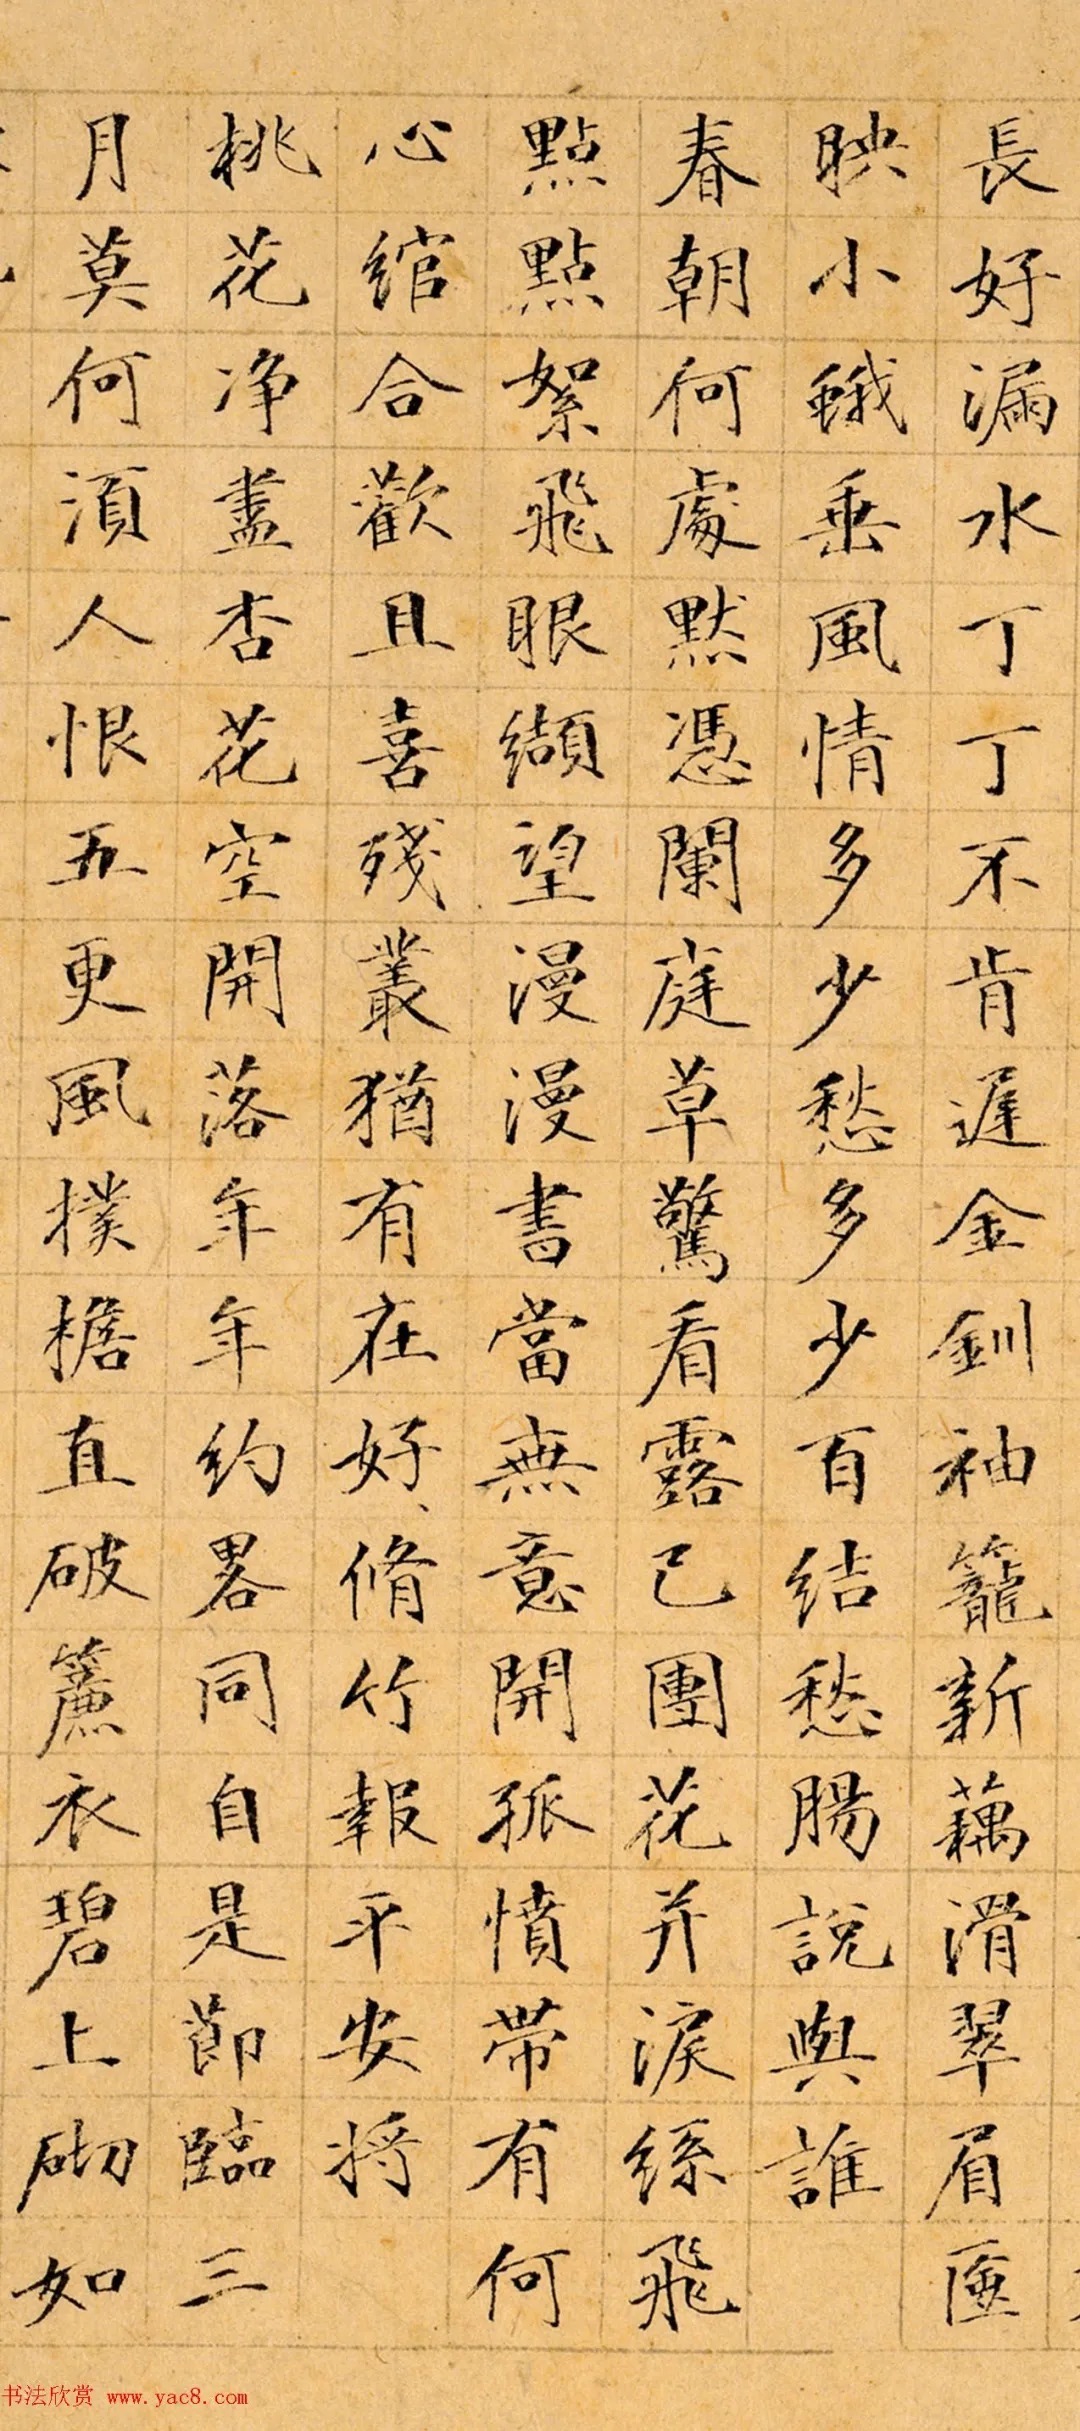 長好漏水丁丁不肯遲金釧袖籠新藕滑翠眉匳
映小蛾垂風情多少愁多少百結愁腸說與誰
春朝何處默憑闌庭草驚看露已團花并淚絲飛
點點絮飛眼纈望漫漫書當無意開孤憤帶有何
心綰合歡且喜殘叢猶有在好脩竹報平安將
桃花净盡杏花空開落年年約畧同自是節臨三
月莫何須人恨五更風撲檐直破簾衣碧上砌如
书法欣赏 www.yac8.com